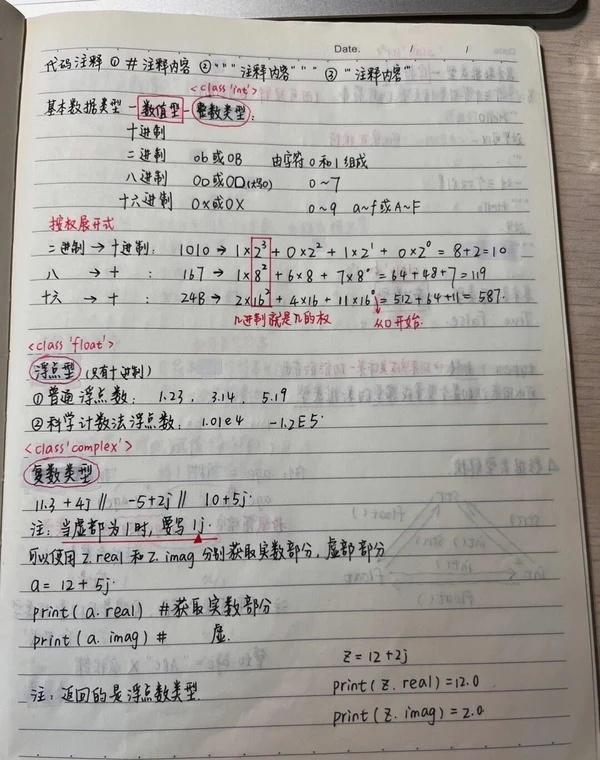 Date. / /
代码注释 ① # 注释内容 ② """ 注释内容 """ ③ " 注释内容 "
<class 'int'>
基本数据类型 - 数值型 - 整数类型:
十进制
二进制 0b或0B 由字符0和1组成
八进制 0o或0O(大写O) 0~7
十六进制 0x或0X 0~9 a~f或A~F
按权展开式
二进制 → 十进制: 1010 → 1×2³ + 0×2² + 1×2¹ + 0×2⁰ = 8+2=10
八 → 十 : 167 → 1×8² + 6×8 + 7×8⁰ = 64+48+7=119
十六 → 十 : 24B → 2×16² + 4×16 + 11×16⁰ = 512+64+11=587.
几进制就是几的权 从0开始.
<class 'float'>
浮点型 (只有十进制)
① 普通浮点数: 1.23 , 3.14 , 5.19
② 科学计数法浮点数: 1.01e4 -1.2E5.
<class'complex'>
复数类型
11.3 + 4j // -5+2j // 10+5j.
注: 当虚部为1时, 要写1j.
可以使用 z.real 和 z.imag 分别获取实数部分, 虚部部分
a= 12 + 5j.
print(a.real) #获取实数部分
print(a.imag) # 虚.
z=12+2j
注: 返回的是浮点数类型. print(z.real)=12.0
print(z.imag)=2.0